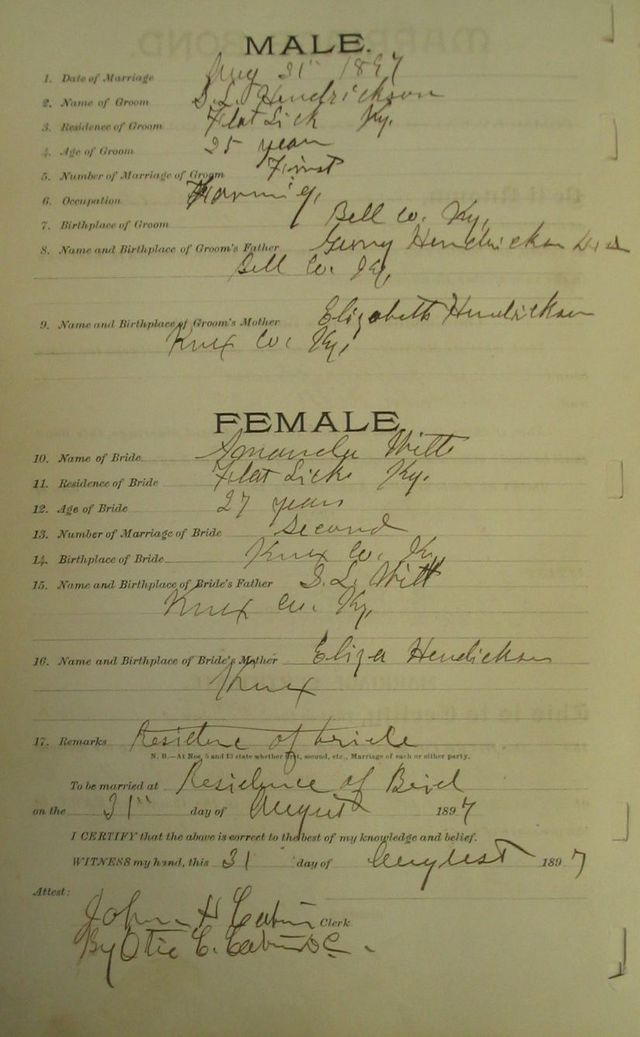 MALE.
1. Date of Marriage Aug 31st 1897
2. Name of Groom Hendrickson
3. Residence of Groom Flat Lick Ky.
4. Age of Groom 25 years
5. Number of Marriage of Groom First
6. Occupation Farming,
7. Birthplace of Groom Bell Co. Ky,
8. Name and Birthplace of Groom's Father Hendrickson
Bell Co. Ky,
9. Name and Birthplace of Groom's Mother Elizabeth Hendrickson
Knox Co. Ky,
FEMALE.
10. Name of Bride Amanda Witt
11. Residence of Bride Flat Lick Ky.
12. Age of Bride 27 years
13. Number of Marriage of Bride Second
14. Birthplace of Bride Knox Co. Ky
15. Name and Birthplace of Bride's Father Witt
Knox Co. Ky,
16. Name and Birthplace of Bride's Mother Eliza Hendickson
Knox
17. Remarks Residence of bride
N. B.—At Nos. 5 and 13 state whether first, second, etc., Marriage of each or either party.
To be married at Residence of
on the 31st day of August 1897
I CERTIFY that the above is correct to the best of my knowledge and belief.
WITNESS my hand, this 31 day of August 1897
Attest:
John H Clerk
By